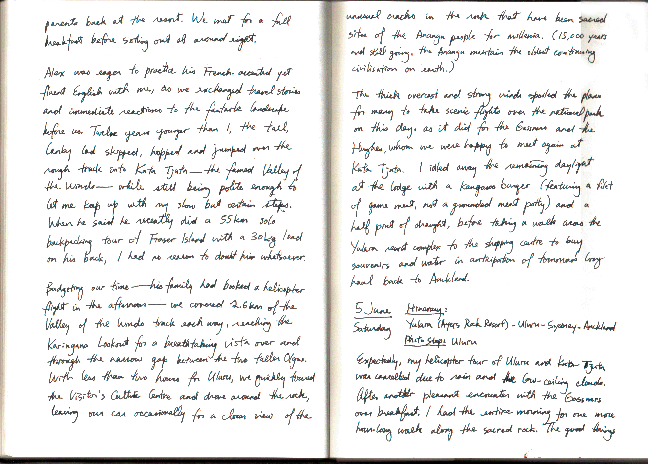 parents back at the resort. We met for a full
breakfast before setting out at around eight.
Alex was eager to practice his French-accented yet
fluent English with me, as we exchanged travel stories
and immediate reactions to the fantastic landscape
before us. Twelve years younger than I, the tall,
lanky lad skipped, hopped and jumped over the
rough track into Kata Tjuta — the famed Valley of
the Winds — while still being polite enough to
let me keep up with my slow but certain steps.
When he said he recently did a 55km solo
backpacking tour of Fraser Island with a 30kg load
on his back, I had no reason to doubt him whatsoever.
Budgeting our time — his family had booked a helicopter
flight in the afternoon — we covered 2.6km of the
Valley of the Winds track each way, reaching the
Karingana Lookout for a breathtaking vista over and
through the narrow gap between the two taller Olgas.
With less than two hours for Uluru, we quickly toured
the Visitor's Culture Centre and drove around the rock,
leaving our car occasionally for a closer view of the
unusual cracks in the rock that have been sacred
sites of the Anangu people for millenia. (15,000 years
and still going, the Anangu maintain the oldest continuing
civilisation on earth.)
The thick overcast and strong winds spoiled the plans
for many to take scenic flights over the national park
on this day, as it did for the Gossmans and the
Hughes, whom we were happy to meet again at
Kata Tjuta. I idled away the remaining daylight
at the lodge with a kangaroo burger (featuring a filet
of game meat, not a grounded meat patty) and a
half pint of draught, before taking a walk across the
Yulara resort complex to the shopping centre to buy
souvenirs and water in anticipation of tomorrow's long
haul back to Auckland.
5 June Itinerary:
Saturday Yulara (Ayers Rock Resort) - Uluru - Sydney - Auckland
Photo Stops: Uluru
Expectedly, my helicopter tour of Uluru and Kata Tjuta
was cancelled due to rain and the low-ceiling clouds.
After another pleasant encounter with the Gossmans
over breakfast, I had the entire morning for one more
hour-long walk along the sacred rock. The good things